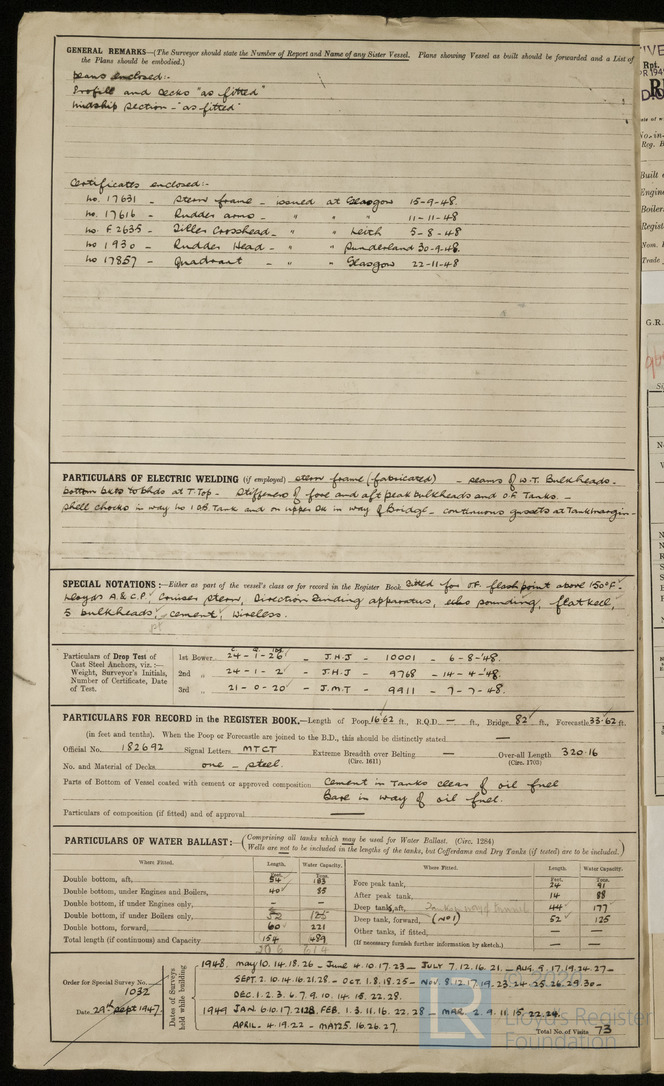 GENERAL REMARKS—(The Surveyor should state the Number of Report and Name of any Sister Vessel. Plans showing Vessel as built should be forwarded and a List of
the Plans should be embodied.)
Plans enclosed:-
Profile and Decks "as fitted"
Midship Section - "as fitted"
Certificates enclosed:-
No. 17631 - Stern frame - issued at Glasgow 15-9-48.
No. 17616 - Rudder arms - " " " 11-11-48
No. F 2635 - Tiller Crosshead - " " Leith 5-8-48
No 1930 - Rudder Head - " " Sunderland 30-9-48.
No 17857 - Quadrant - " " Glasgow 22-11-48
PARTICULARS OF ELECTRIC WELDING (if employed) stern frame (fabricated) - seams of W.T. Bulkheads.
bottom bkts to bhds at T.Top - Stiffeners of fore and aft peak bulkheads and O.F. Tanks. -
Shell chocks in way No 1 D.B. Tank and on upper Dk in way of Bridge - continuous gussets at Tank margin -
SPECIAL NOTATIONS:—Either as part of the vessel's class or for record in the Register Book fitted for O.F. flash point above 150°F.
Lloyds A & C.P., Cruiser stern, Direction finding apparatus, echo sounding, flat keel,
5 bulkheads, cement, wireless.
Particulars of Drop Test of
Cast Steel Anchors, viz.:—
Weight, Surveyor's Initials,
Number of Certificate, Date
of Test.
1st Bower 24-1-26 - J.H.J - 10001 - 6-8-'48.
2nd " 24-1-2 - J.H.J - 9768 - 14-4-'48.
3rd " 21-0-20 - J.M.T - 9911 - 7-7-48.
PARTICULARS FOR RECORD in the REGISTER BOOK.—Length of Poop 16.62 ft., R.Q.D. — ft., Bridge 82 ft., Forecastle 33.62 ft.
(in feet and tenths). When the Poop or Forecastle are joined to the B.D., this should be distinctly stated —
Official No. 182692 Signal Letters MTCT Extreme Breadth over Belting — Over-all Length 320.16
(Circ. 1611) (Circ. 1703)
No. and Material of Decks one - steel.
Parts of Bottom of Vessel coated with cement or approved composition Cement in Tanks clear of oil fuel
Bare in way of oil fuel.
Particulars of composition (if fitted) and of approval —
PARTICULARS OF WATER BALLAST:— (Comprising all tanks which may be used for Water Ballast. (Circ. 1284)
Wells are not to be included in the lengths of the tanks, but Cofferdams and Dry Tanks (if tested) are to be included.)
Where Fitted. Length. Water Capacity. Where Fitted. Length. Water Capacity.
Feet. Tons. Feet. Tons.
Double bottom, aft, 54 183 Fore peak tank, 24 91
Double bottom, under Engines and Boilers, 40 85 After peak tank, 14 88
Double bottom, if under Engines only, — — Deep tank, aft, 44 177
Double bottom, if under Boilers only, 52 125 Deep tank, forward, (No 1) 52 125
Double bottom, forward, 60 221 Other tanks, if fitted, — —
Total length (if continuous) and Capacity 154 489 (If necessary furnish further information by sketch.) — —
206 614
Order for Special Survey No. 1032
Date 29th Sept 1947.
Dates of Surveys held while building
1948. May 10.14.18.26 - June 4.10.17.23 - JULY 7.12.16.21 - AUG. 9.17.19.24.27 -
SEPT. 2.10.14.16.21.28 - OCT. 1.8.18.25 - NOV. 8.12.17.19.23.24.25.26.29.30 -
DEC. 1.2.3.6.7.9.10.14.15.22.28.
1949 JAN 6.10.17.21.28. FEB. 1.3.11.16.22.28 - MAR. 2.9.11.15.22.24.
APRIL - 4.19.22 - MAY 25.16.26.27.
Total No. of Visits 73
Lloyd's Register
Foundation